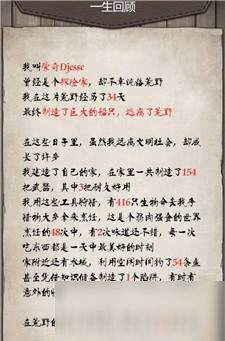 一生回顾
我叫蒙奇Djesse
曾经是个探险家，却不幸流落荒野
我在这片荒野经历了34天
最终制造了巨大的船只，逃离了荒野
在这些日子里，虽然我远离文明社会，却成
长了许多
我建造了自己的家，在家里一共制造了154
把武器，其中3把耐久好用
我用这些工具狩猎，有416只生物命丧我手
猎物大多拿来烹饪，这是个弱肉强食的世界
烹饪的48次中，有2次味道还不错，每一次
吃东西都是一天中最美好的时刻
家附近还有水域，利用空闲时间钓了54条鱼
甚至凭借知识储备制造了1个陷阱，有时有
意外的
在荒野